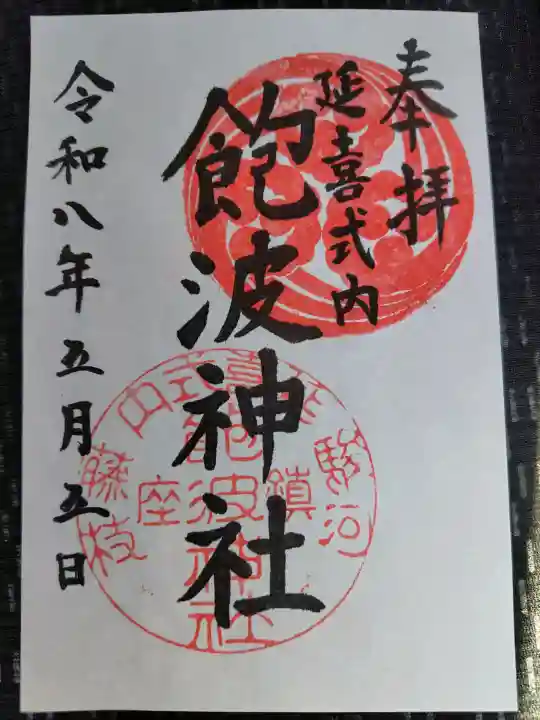 奉拝
延喜式内
飽波神社
令和八年五月五日
延喜式内
駿河
鎮座
藤枝
飽波神社